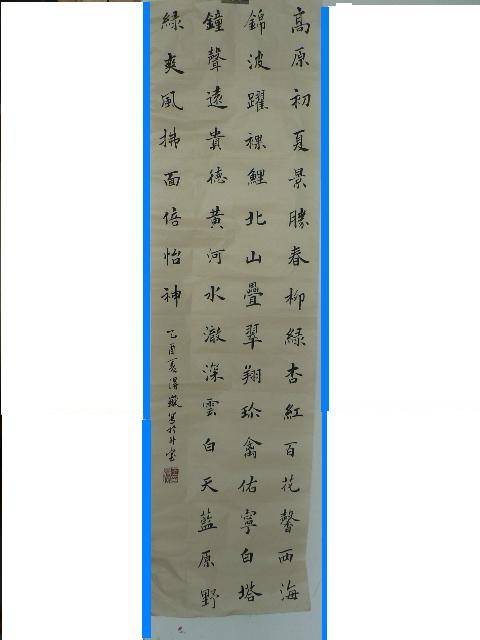 高原初夏景勝春柳綠杏紅百花馨西海
錦波躍裸鯉北山疊翠翔珍禽佑寧白塔
鐘聲遠貴德黃河水澈深雲白天藍原野
綠爽風拂面倍怡神
乙酉夏得嶽